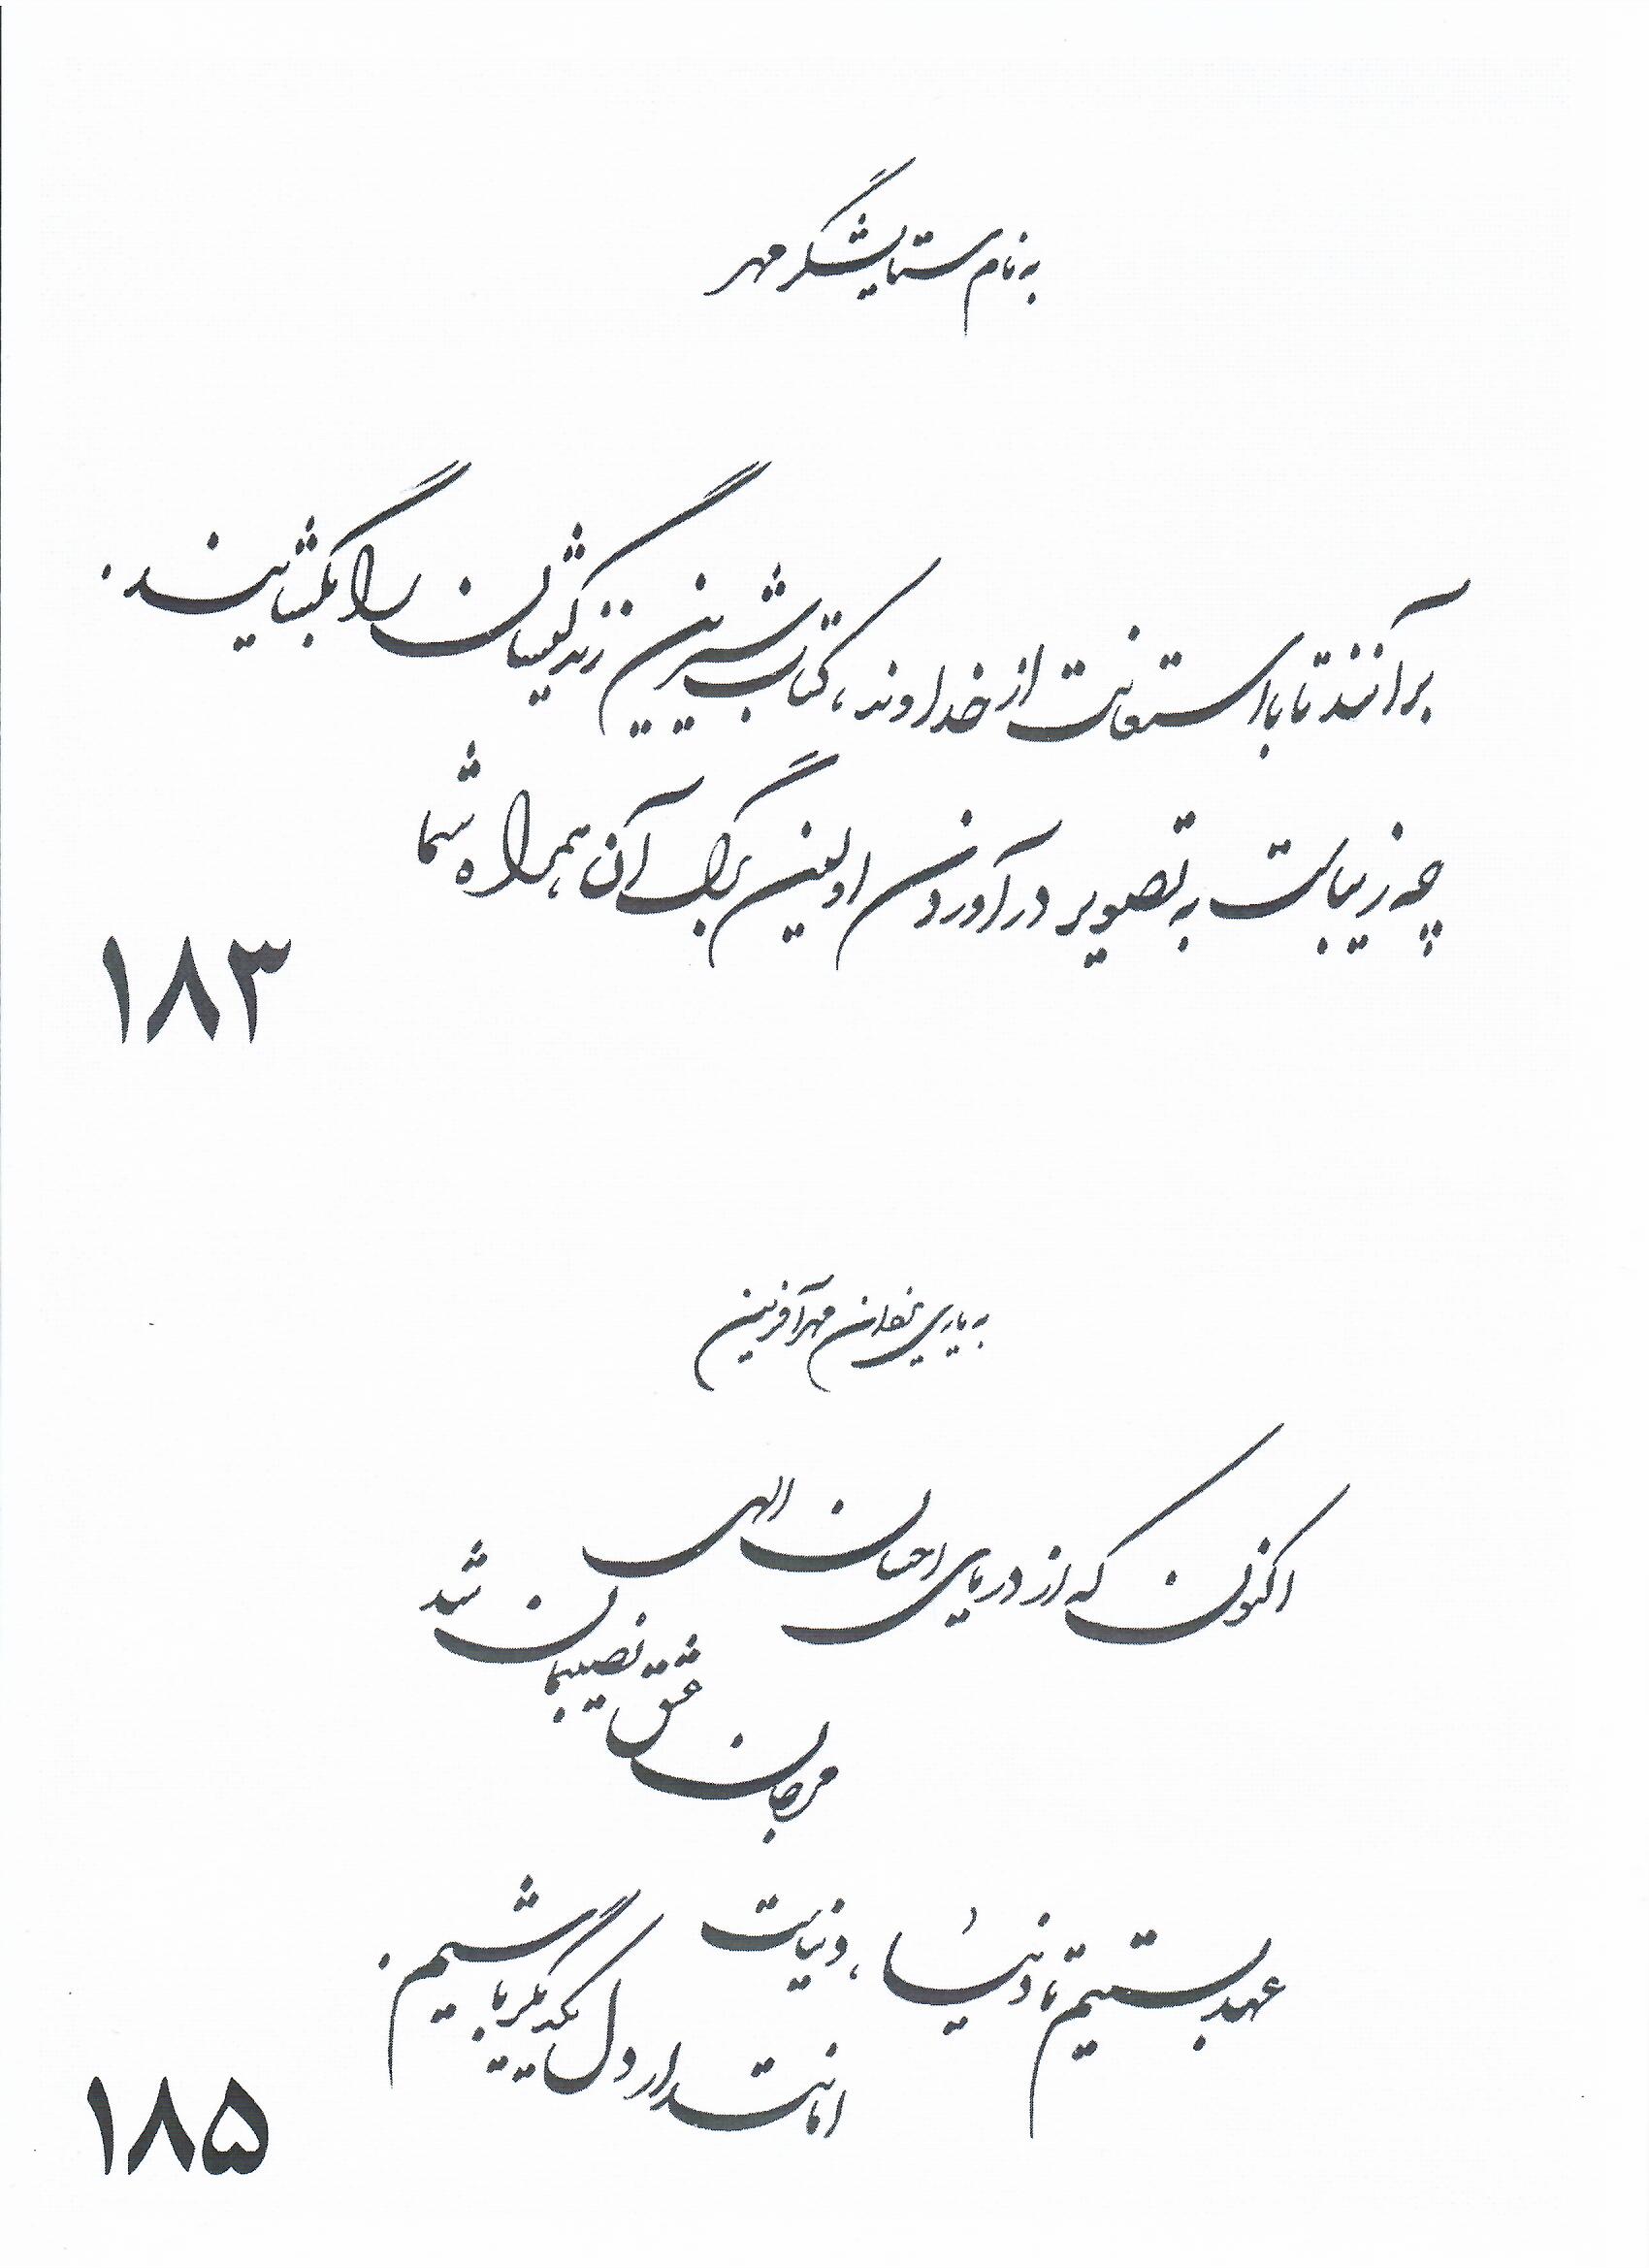 به نام ستایشگر مهر
برآنند تا با استعانت از خداوند، کتاب شیرین زندگیشان را بگشایند.
چه زیباست به تصویر درآوردن اولین برگ آن همراه شما
۱۸۳
به یاری یزدان مهرآفرین
اکنون که از دریای احسان الهی
مرجان عشق نصیبمان شد
عهد بستیم تا دنیا، دنیاست
امانتدار دل یکدیگر باشیم.
۱۸۵